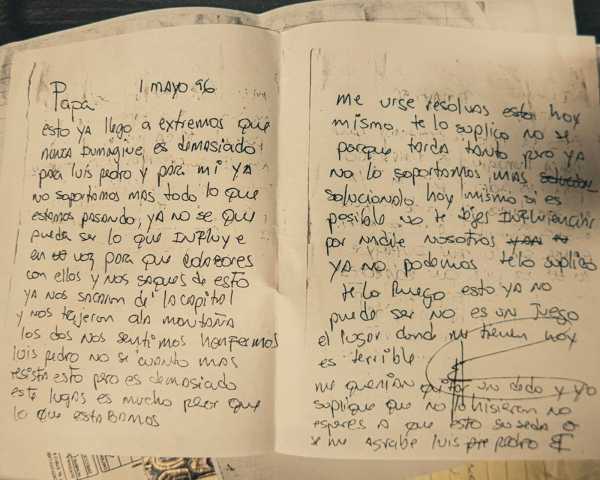 1 MAYO 96
Papa
esto ya llegó a extremos que
nunca Imagine, es demasiado
para luis pedro y para mi ya
no soportamos mas todo lo que
estamos pasando, ya no se que
pueda ser lo que Influye
en voz para que
con ellos y nos saques de esto
ya nos sacaron de la capital
y nos trajeron ala montaña
los dos nos sentimos henfermos
luis pedro no se cuanto mas
resista esto pero es demasiado
este lugar es mucho peor que
lo que estabamos
me urge resolvas esto hoy
mismo, te lo suplico no se
porque tarda tanto pero ya
no lo soportamos mas
solucionalo hoy mismo si es
posible no te dejes
por nadie nosotros
ya no podemos te lo suplico
te lo Ruego esto ya no
puede ser no es un Juego
el lugar donde me tienen hoy
es terrible
me querian quitar un dedo y yo
suplique que no lo hisieron no
esperes a que esto suseda o
se me agrabe luis pedro